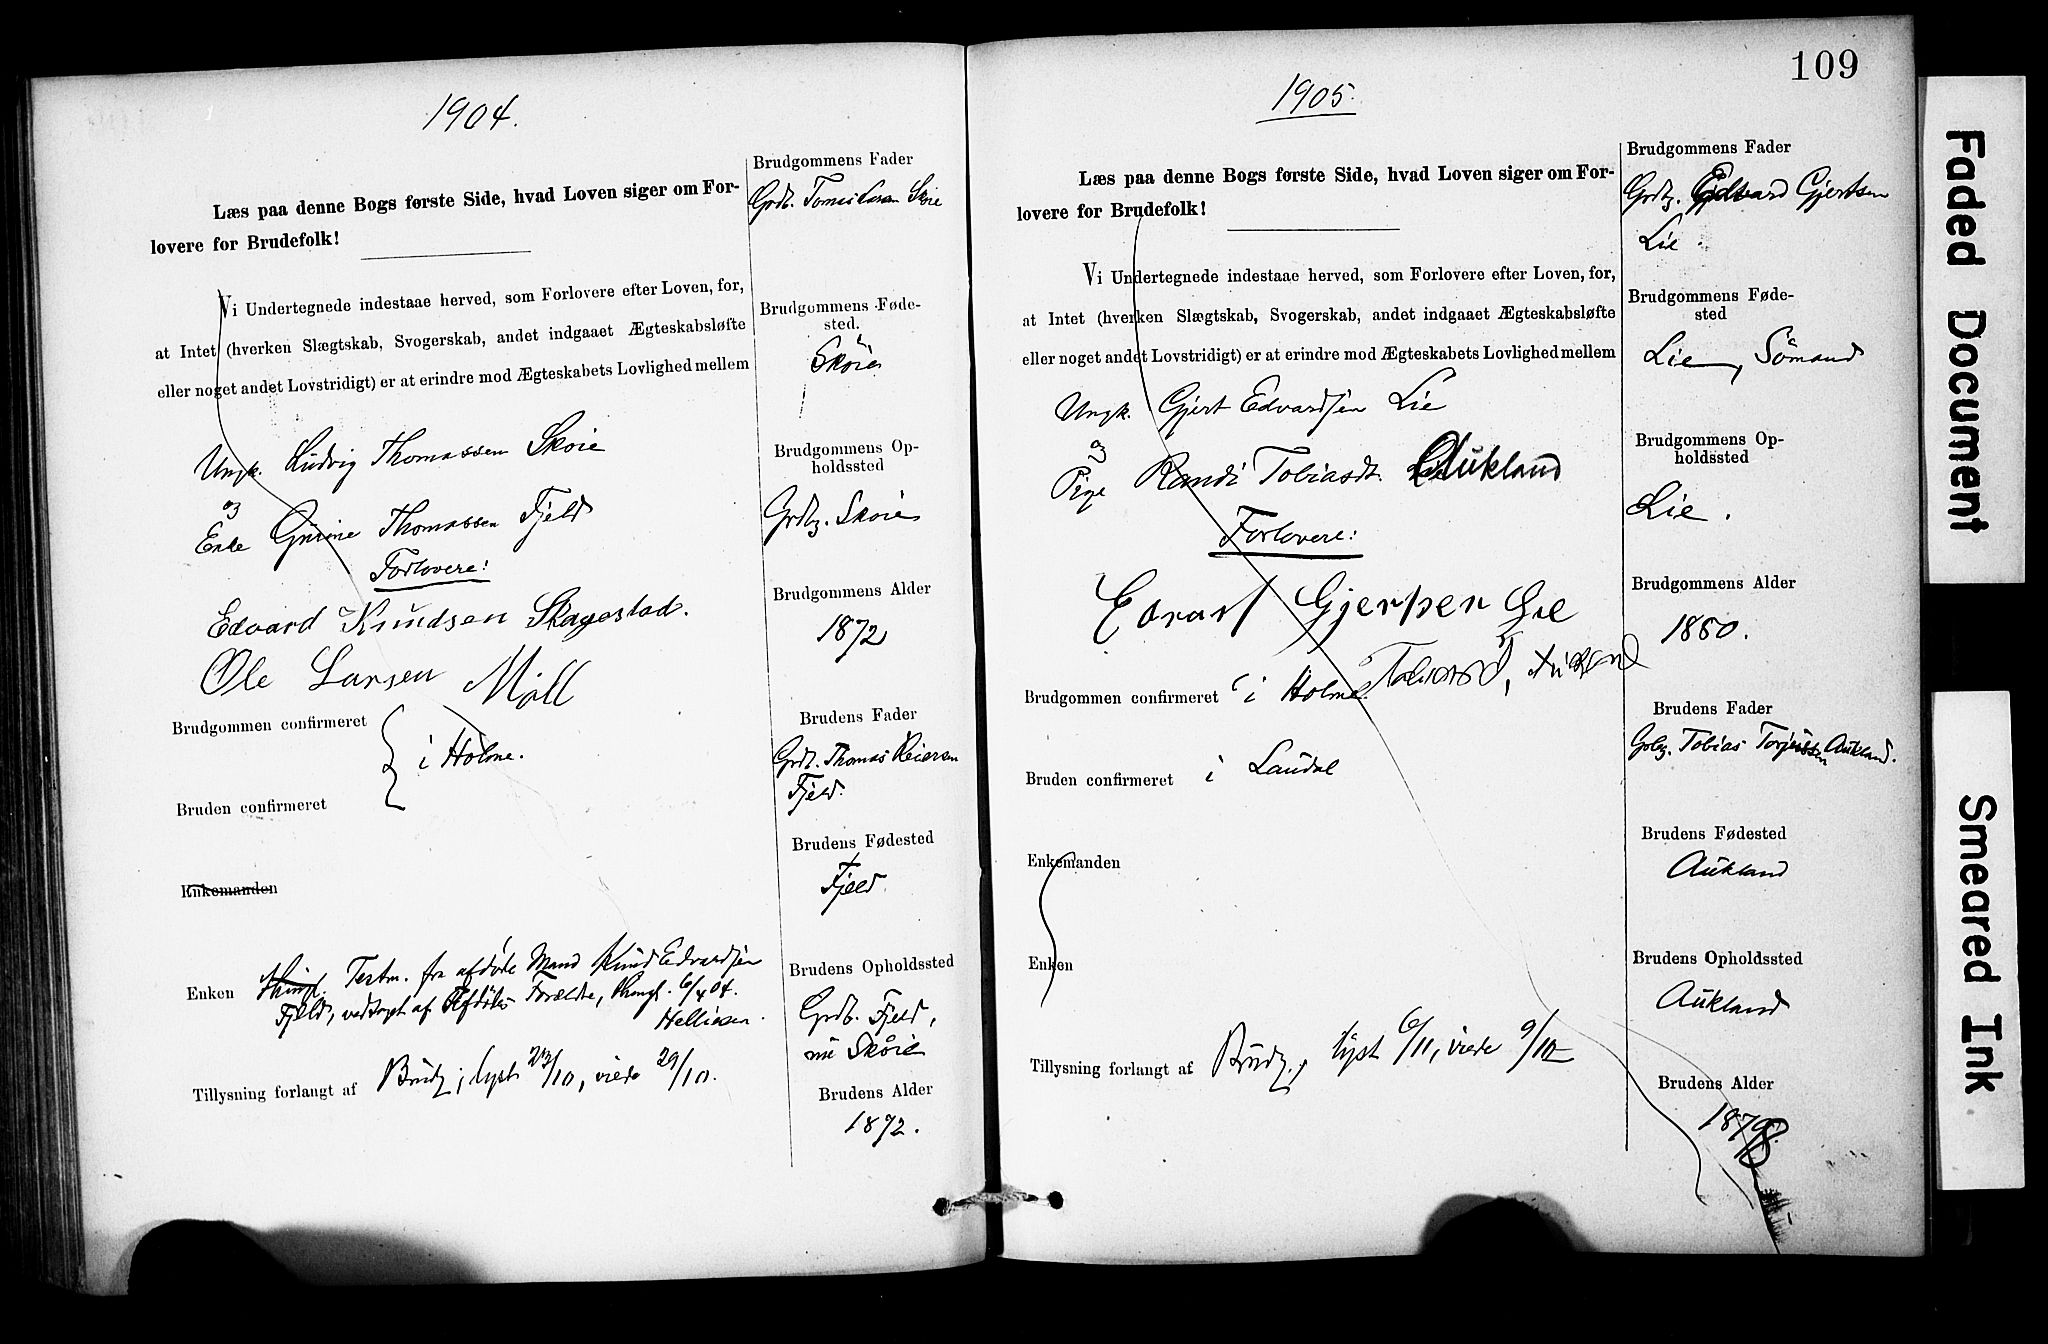 1904.
Læs paa denne Bogs første Side, hvad Loven siger om For-
lovere for Brudefolk!
Vi Undertegnede indestaae herved, som Forlovere efter Loven, for,
at Intet (hverken Slægtskab, Svogerskab, andet indgaaet Ægteskabsløfte
eller noget andet Lovstridigt) er at erindre mod Ægteskabets Lovlighed mellem
Ungk. Ludvig Thomassen Skoie
og
Enke Gurine Thomassen Fjeld
Forlovere:
Edvard Knudsen Skagestad.
Ole Larsen Møll
Brudgommen confirmeret
i Holme.
Bruden confirmeret
Enkemanden
Enken Thingl. Testm. fra afdøde Mand Knud Edvardsen
Fjeld, vedtaget af Afdødes Forældre, thingl. 6/4 04.
Helliesen.
Tillysning forlangt af Brudg; lyst 23/10, viede 29/10.
Brudgommens Fader
Grdb. Tomas Larsen Skoie
Brudgommens Føde-
sted.
Skoie
Brudgommens Op-
holdssted
Grdbg. Skoie
Brudgommens Alder
1872
Brudens Fader
Grdb. Thomas Reiersen
Fjeld.
Brudens Fødested
Fjeld.
Brudens Opholdssted
Grdb. Fjeld,
nu Skoie
Brudens Alder
1872.
109
1905.
Læs paa denne Bogs første Side, hvad Loven siger om For-
lovere for Brudefolk!
Vi Undertegnede indestaae herved, som Forlovere efter Loven, for,
at Intet (hverken Slægtskab, Svogerskab, andet indgaaet Ægteskabsløfte
eller noget andet Lovstridigt) er at erindre mod Ægteskabets Lovlighed mellem
Ungk. Gjert Edvardsen Lie
og
Pige Randi Tobiasdt. Aukland
Forlovere:
Edvart Gjertsen Lie
Brudgommen confirmeret i Holme.
Bruden confirmeret i Laudal
Enkemanden
Enken
Tillysning forlangt af Brudg., lyst 6/11, viede 9/12
Brudgommens Fader
Grdbg. Edvard Gjertsen
Lie.
Brudgommens Føde-
sted
Lie, Sömand
Brudgommens Op-
holdssted
Lie.
Brudgommens Alder
1880.
Brudens Fader
Grbg. Tobias Torjussen Aukland.
Brudens Fødested
Aukland
Brudens Opholdssted
Aukland
Brudens Alder
1878
Faded Document
Smeared Ink